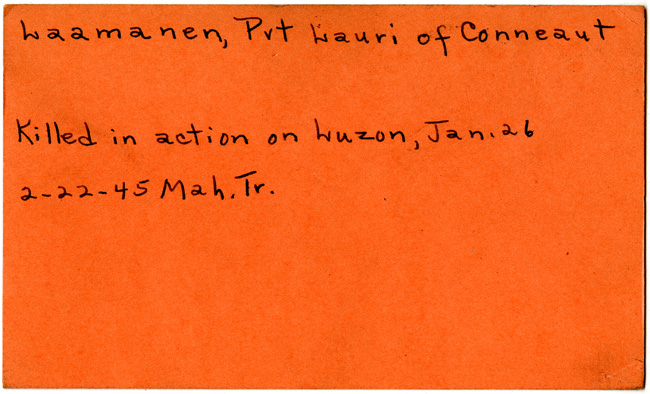 Laamanen, Pvt Lauri of Conneaut
Killed in action on Luzon, Jan. 26
2-22-45 Mah. Tr.